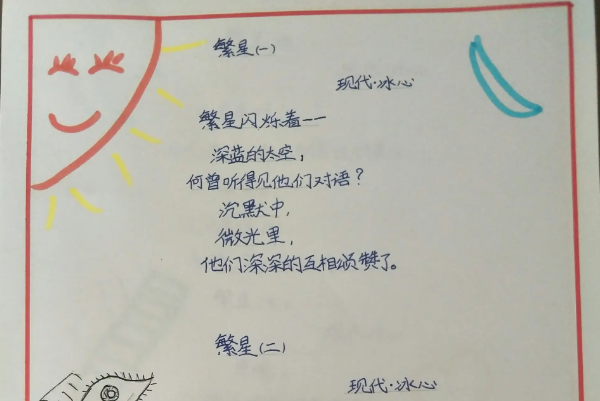 繁星(一)
现代·冰心
繁星闪烁着——
深蓝的太空,
何曾听得见他们对语?
沉默中,
微光里,
他们深深的互相颂赞了。
繁星(二)
现代·冰心